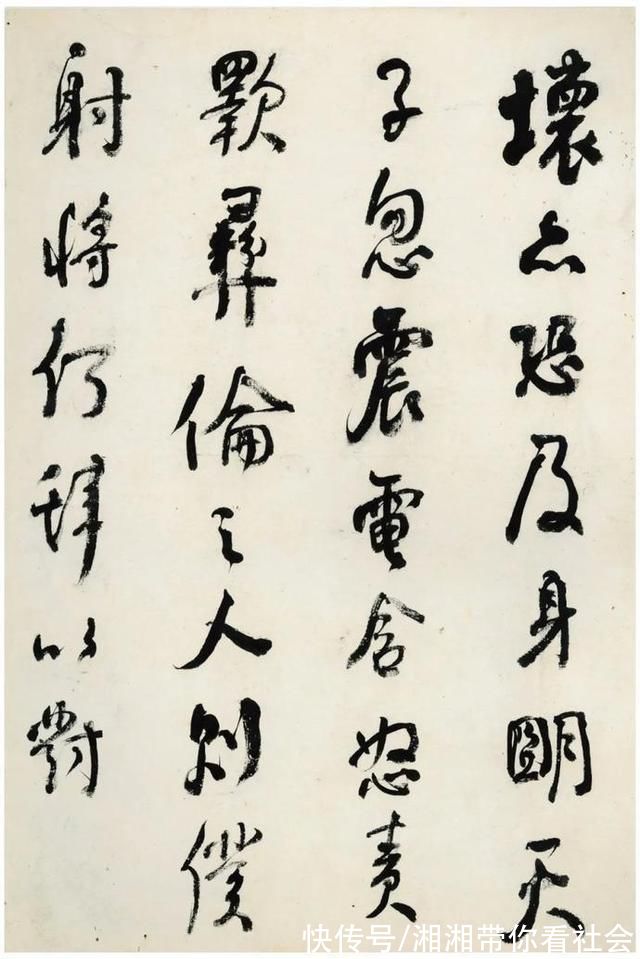 壞亦恐及身明天
子忽震電含怒責
斁彝倫之人則僕
射將何辞以對
快传号/湘湘带你看社会